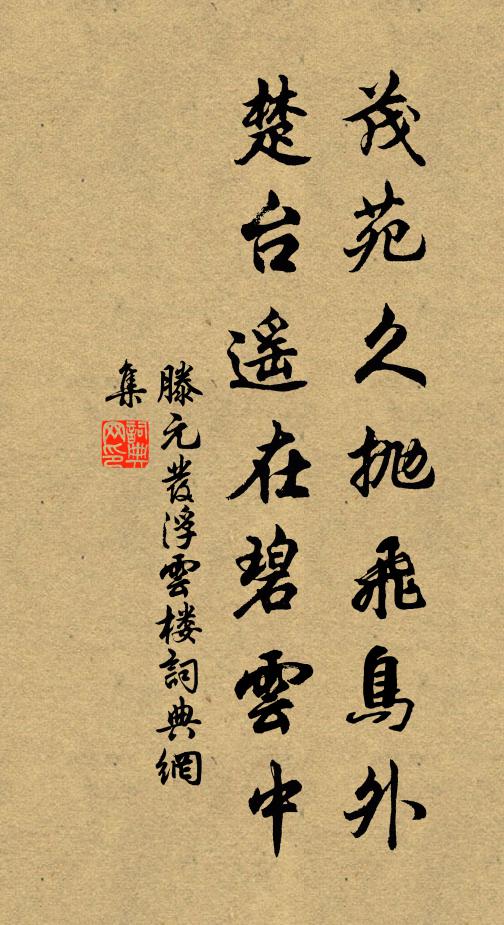 茂苑久抛飛鳥外
楚台遥在碧雲中
滕元發浮雲楼詞典網
集
詞典
网印